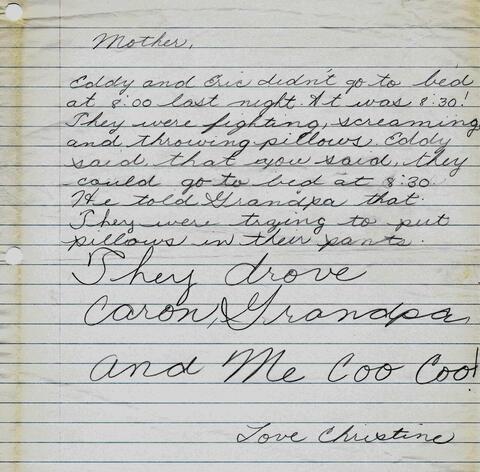 Mother,
Eddy and Eric didn't go to bed
at 8:00 last night. It was 8:30!
They were fighting, screaming
and throwing pillows. Eddy
said that you said, they
could go to bed at 8:30.
He told Grandpa that.
They were trying to put
pillows in their pants.
They drove
Caron, Grandpa,
and Me Coo Coo!
Love Christine